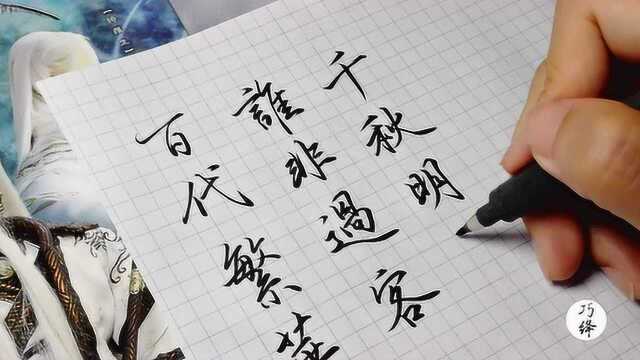 千秋明
誰非過客
百代繁華
巧绛